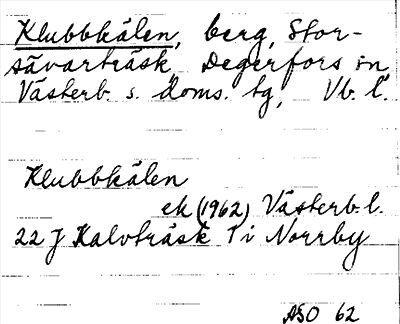 Klubbkälen, berg, Stor-
sävarträsk, Degerfors sn,
Västerb. s. doms. tg, Vb. l.
Klubbkälen
ek (1962) Västerb. l.
22 J Kalvträsk 1 i Norrby
ASO 62